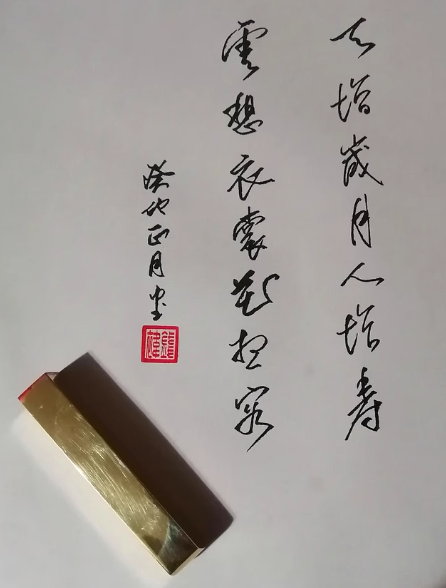 天增歲月人增壽
雲想衣裳花想容
癸卯正月